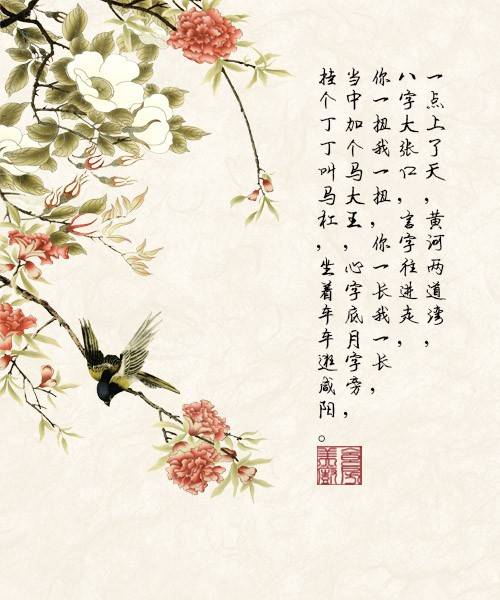 一点上了天，黄河两道湾，
八字大张口，言字往进走，
你一扭我一扭，你一长我一长，
当中加个马大王，心字底月字旁，
挂个丁丁叫马杠，坐着车车逛咸阳。